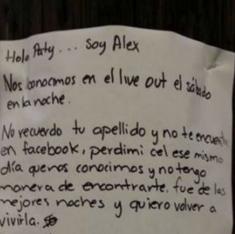 Hola Paty... Soy Alex
Nos conocimos en el live out el sábado
en la noche.
No recuerdo tu apellido y no te encuentro
en facebook, perdi mi cel ese mismo
día que nos conocimos y no tengo
manera de encontrarte. fue de las
mejores noches y quiero volver a
vivirla.